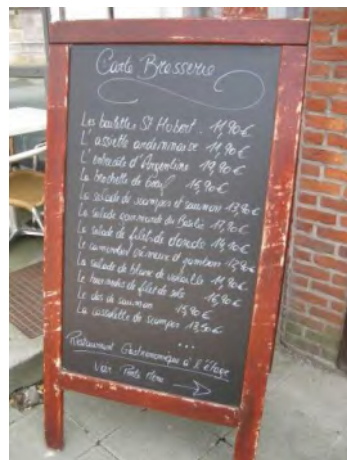 Carte Brasserie
Les boulettes St Hubert. 11,90€
L'assiette ardennaise 11,90€
L'entrecôte d'Argentine 19,90€
La brochette de bœuf 15,90€
La salade de scampis et saumon 13,90€
La salade gourmande du Bastin 17,90€
La salade de filets de dorade 14,90€
Le camembert crémeux et jambon 12,90€
La salade de blanc de volaille 11,90€
Le tournedos de filet de sole 16,90€
Le dos de saumon 15,90€
La cassolette de scampis 13,50€
...
Restaurant Gastronomique à l'étage
Voir Menu